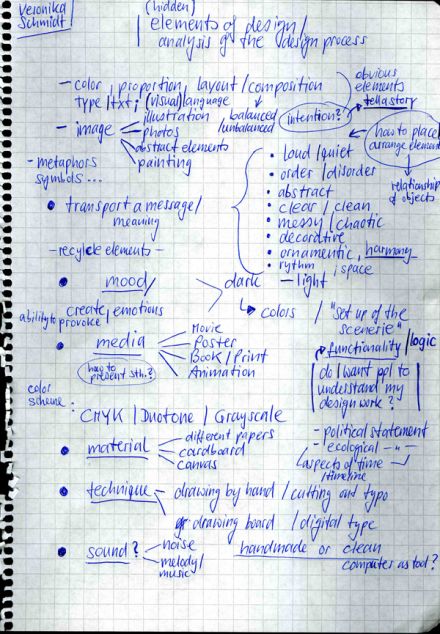 Veronika
Schmidt
(hidden)
elements of design /
analysis of the design process
– color, proportion, layout / composition
type / txt; (visual) language
balanced
/unbalanced
intention?
obvious
elements
tell a story
– image
illustration
photos
abstract elements
painting
how to place/
arrange element
relationship
of objects
– metaphors
symbols ...
• transport a message /
meaning
– recycle elements –
• loud / quiet
• order / disorder
• abstract
• clear / clean
• messy / chaotic
• decorative
• ornamentic, harmony
• rythm , space
• mood /
dark – light
colors / "set up of the
scenerie"
ability to create, emotions
provoke
• media
Movie
Poster
Book / Print
Animation
how to
present sth.?
functionality / logic
do I want ppl to
understand my
design work?
color
scheme:
CMYK / Duotone / Grayscale
– political statement
– ecological – " –
(aspects of time
/timeline
• material
different papers
cardboard
canvas
• technique – drawing by hand / cutting and typo
or drawing board / digital type
• sound?
noise
melody /
music
handmade or clean
computer as tool?